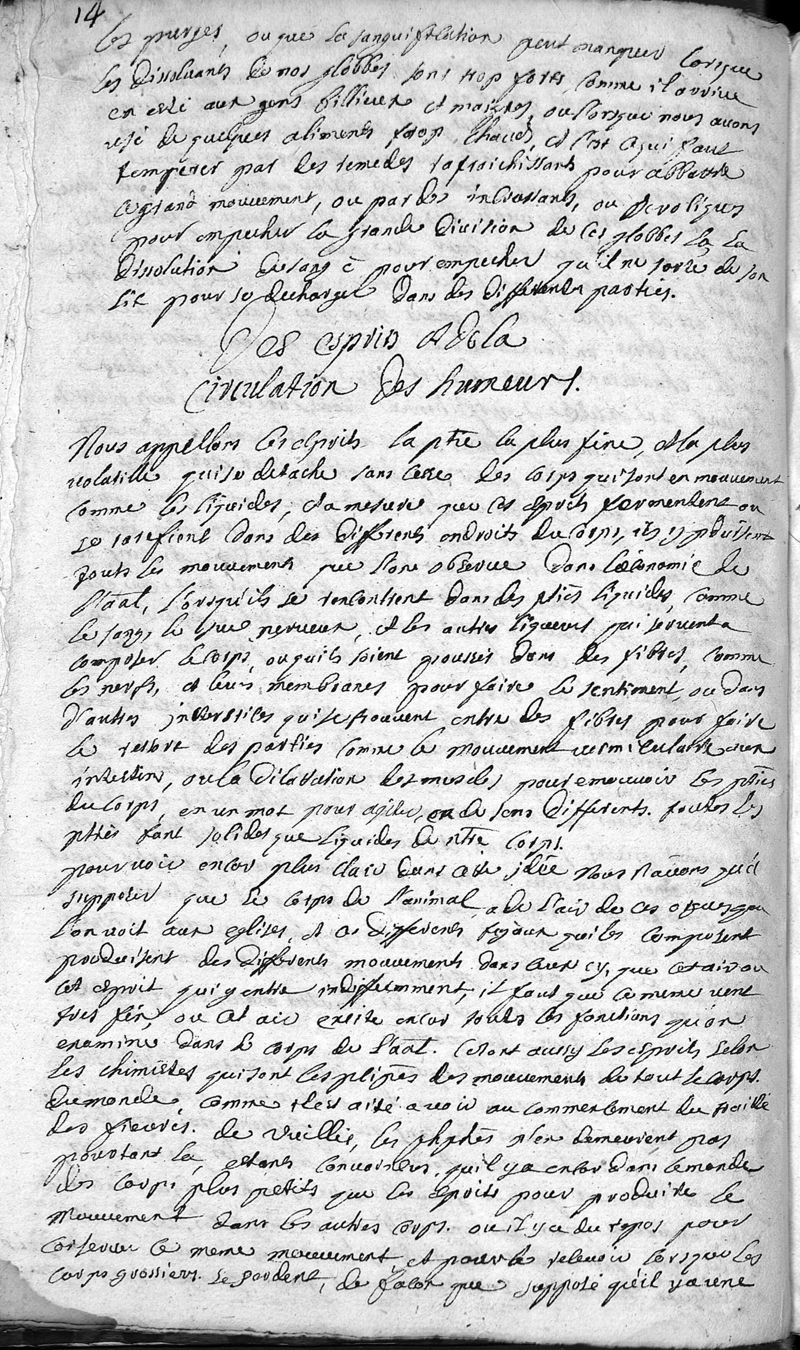 14
les purges, ou que la sanguification peut manquer lorsque
les dissoluants de nos globbes sont trop forts, comme il arrive
en esté aux gens billieux et maigres, ou lorsque nous avons
usé de quelques aliments trop chauds, et c'est ce qui faut
temperer par des remedes rafraichissants pour abbattre
ce grand mouvement, ou par de incrassants, ou
pour empecher la grande division de ces globbes la la
dissolution du sang e pour empecher qu'il ne sorte de son
lit pour se decharger dans des differentes parties.
Des esprits et de la
Circulation des humeurs.
Nous appellons les esprits la ptie la plus fine, et la plus
volatille qui se detache sans cesse des corps qui sont en mouvement
comme les liquides, et a mesure que ces esprits fermentent ou
se rarefient dans des differents endroits du corps, ils y produisent
touts les mouvements que l'on observe dans l'œconomie de
l'aal, lorsqu'ils se rencontrent dans des pties liquides, comme
le sang, le suc nerveux, et les autres liqueurs qui servent a
composer le corps, ou qu'ils soient poussés dans des fibres, comme
les nerfs, et leurs membranes pour faire le sentiment, ou dans
d'autres interstices qui se trouvent entre des fibres pour faire
le ressort des parties comme le mouvement vermiculaire aux
intestins, ou la dilatation des muscles pour emouvoir les pties
du corps, en un mot pour agiter, en de sens differents toutes les
pties tant solides que liquides de ntre corps.
pour voir encor plus clair dans cette idée nous n'avons qu'a
supposer que le corps de l'animal a de l'air de ces orgues que
l'on voit aux eglises, et ces differents tuyaux qui les composent
produisent des differents mouvements dans ceux cy, que cet air ou
cet esprit qui y entre indifferemment, il faut que ce meme vent
tres fin, ou cet air excite encor toutes les fonctions qu'on
examine dans le corps de l'aal. Ce sont aussy les esprits selon
les chimistes qui sont les plipes des mouvements de tout le corps.
du monde, comme il est aisé a voir au commencement du traitté
des fievres. de Vieussens, les phphes n'en demeurent pas
pourtant la, etants convaincus, qu'il y a encor dans le monde
des corps plus petits que les esprits pour produire le
mouvement dans les autres corps. ou il y a du repos pour
conserver ce meme mouvement et pour le relevoir lorsque les
corps grossiers. le perdent, de facon que supposé qu'il y a une